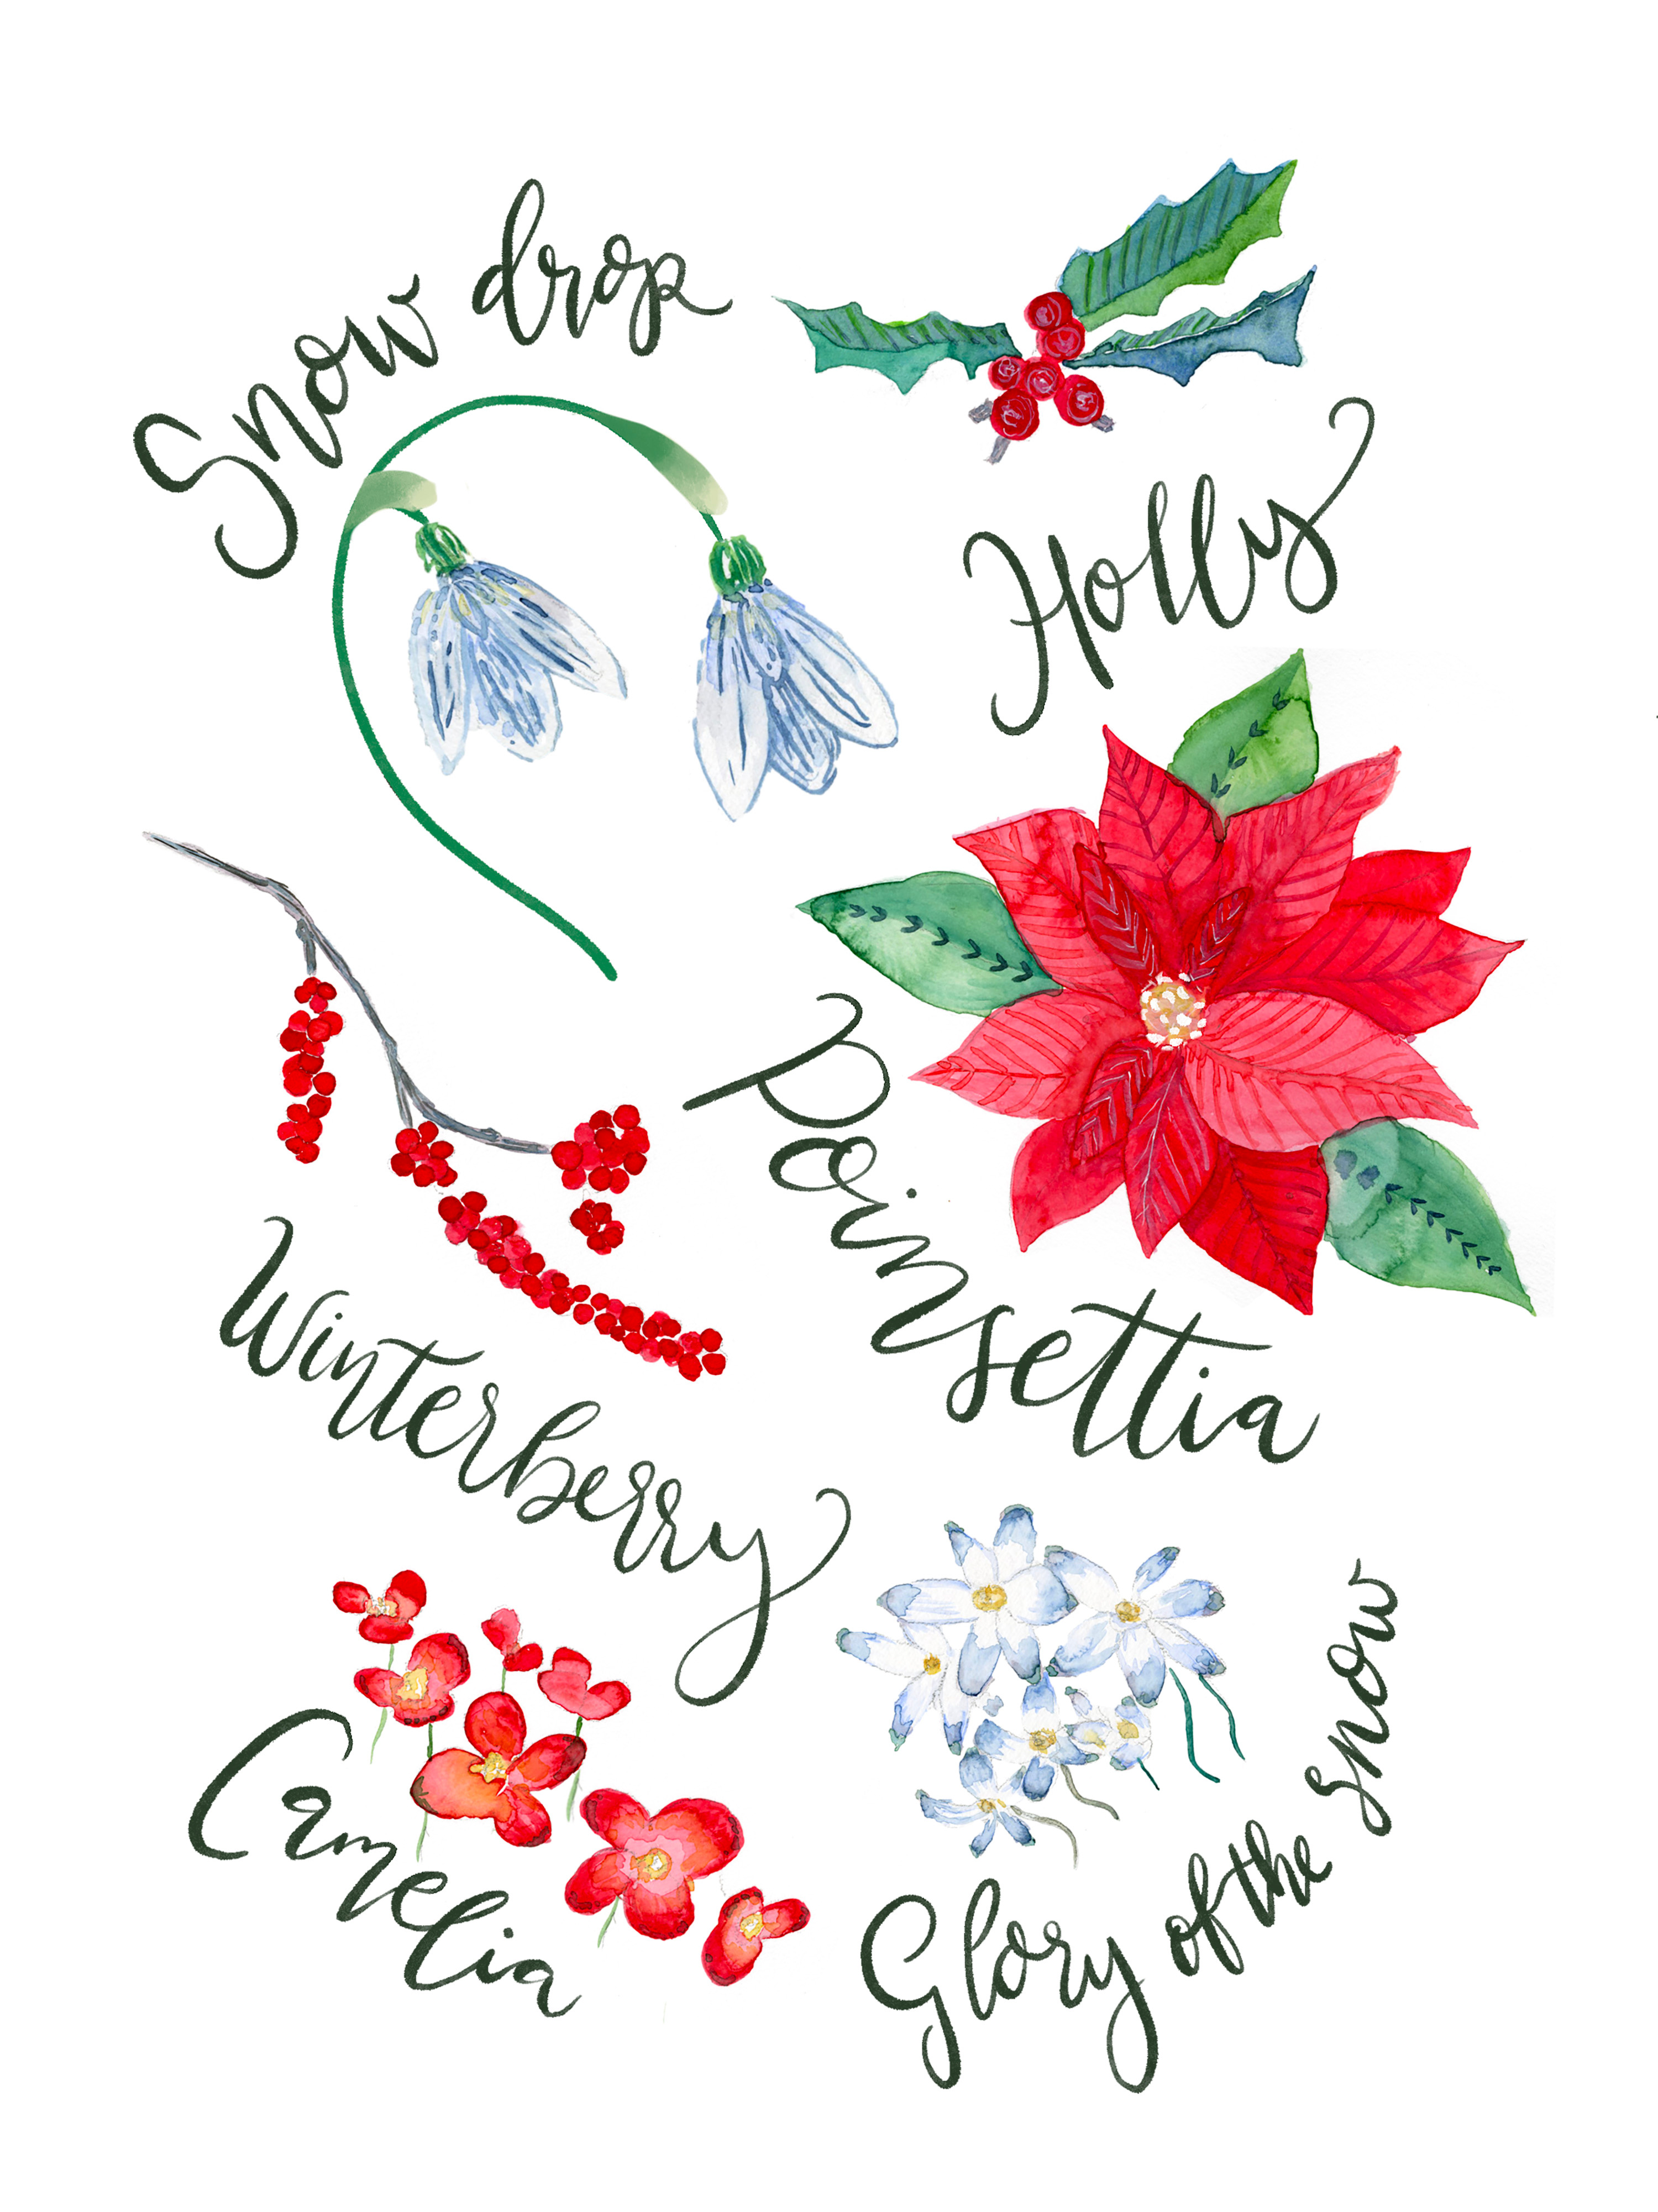 Snow drop
Holly
Poinsettia
Winterberry
Camelia
Glory of the snow